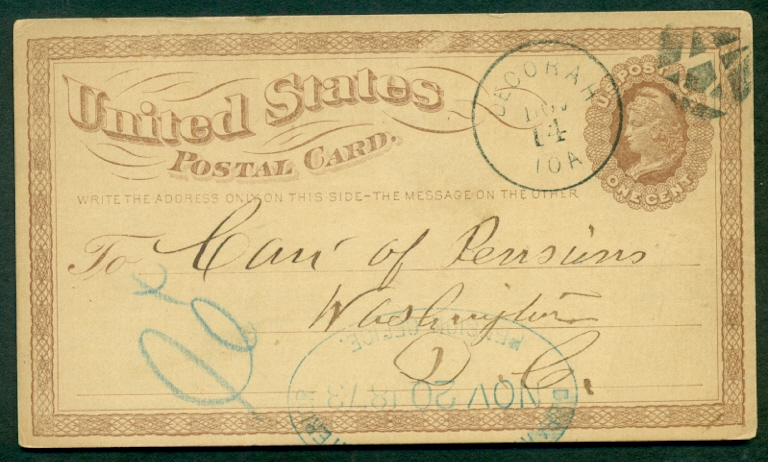 United States
POSTAL CARD.
WRITE THE ADDRESS ONLY ON THIS SIDE-THE MESSAGE ON THE OTHER
DECORAH
NOV
14
IOA
U.S. POSTAGE
ONE CENT
To Com of Pensions
Washington
D. C.
PENSION OFFICE.
NOV 20 1873